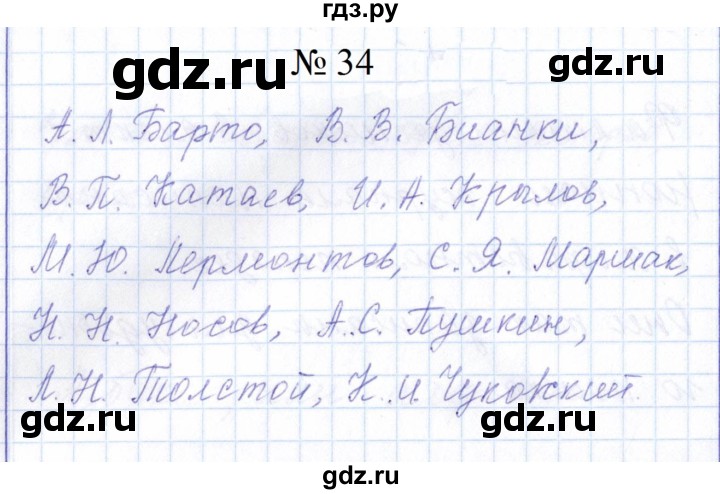 гдз.ру
gdz.ru № 34 gdz.ru
А. Л. Барто, В. В. Бианки,
В. П. Катаев, И. А. Крылов,
М. Ю. Лермонтов, С. Я. Маршак,
Н. Н. Носов, А. С. Пушкин,
Л. Н. Толстой, К. И. Чуковский.
gdz.ru gdz.ru
gdz.ru